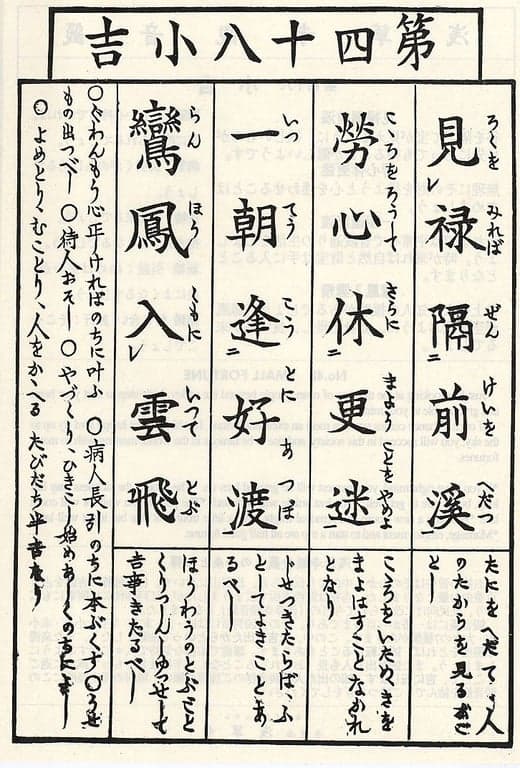 第四十八小吉
見レ禄隔二前溪
ろくを みれば ぜん けいを へだつ
たにをへだてゝ人
のたからを見るがご
とし
勞心休二更迷
こころをろうして さらに まよう ことをやめよ
こころをいためきを
まよはすことなかれ
となり
一朝逢二好渡
いつ てう こう とに あつぼ
じせつきたらば、ふ
としてよきことあ
るべし
鸞鳳入レ雲飛
らん ほう くもに いつて とぶ
ほうわうのとぶごと
くりつしんしゆつせして
吉事きたるべし
○ぐわんもう心正しければのちに叶ふ ○病人長引のちに本ぶくす○うせ
もの出づべし ○待人おそし ○やづくり、ひきこし始めあしくのちによし
○よめとり、むことり、人をかゝへる たびだち半吉なり